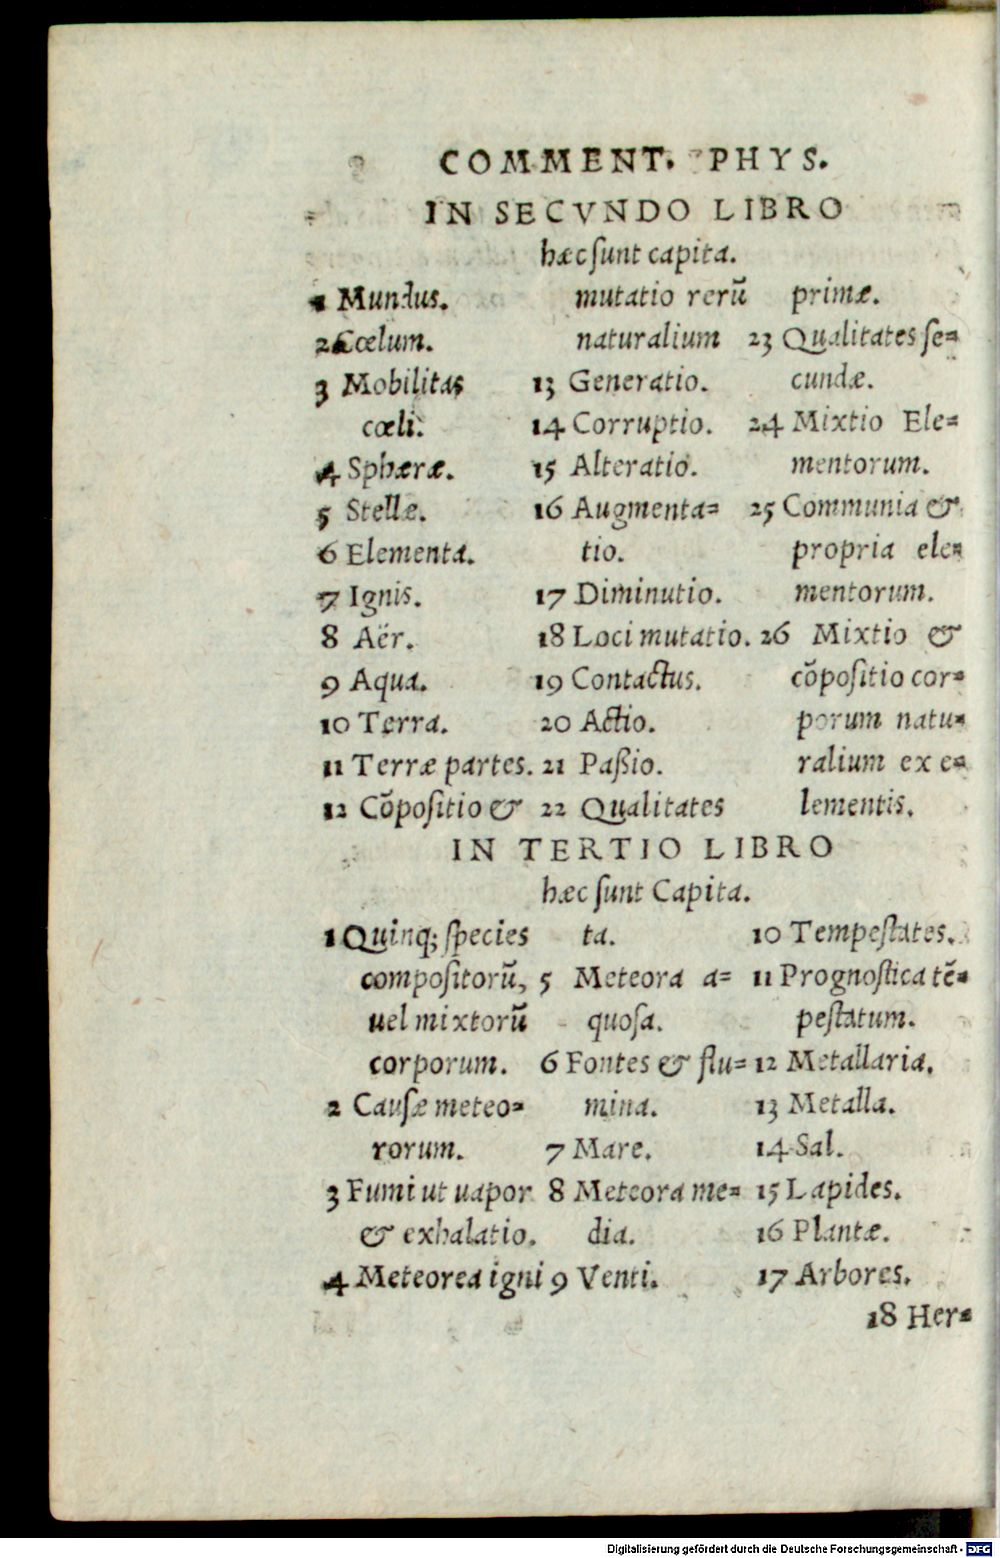 COMMENT. PHYS.
IN SECVNDO LIBRO
hæc sunt capita.
1 Mundus.
2 Cœlum.
3 Mobilitas
cœli.
4 Sphæræ.
5 Stellæ.
6 Elementa.
7 Ignis.
8 Aër.
9 Aqua.
10 Terra.
11 Terræ partes.
12 Cõpositio &
mutatio rerũ
naturalium
13 Generatio.
14 Corruptio.
15 Alteratio.
16 Augmenta=
tio.
17 Diminutio.
18 Loci mutatio.
19 Contactus.
20 Actio.
21 Paßio.
22 Qualitates
primæ.
23 Qualitates se=
cundæ.
24 Mixtio Ele=
mentorum.
25 Communia &
propria ele=
mentorum.
26 Mixtio &
cõpositio cor=
porum natu=
ralium ex e=
lementis.
IN TERTIO LIBRO
hæc sunt Capita.
1 Quinq; species
compositorũ,
uel mixtorũ
corporum.
2 Causæ meteo=
rorum.
3 Fumi ut uapor
& exhalatio.
4 Meteorea igni
ta.
5 Meteora a=
quosa.
6 Fontes & flu=
mina.
7 Mare.
8 Meteora me=
dia.
9 Venti.
10 Tempestates.
11 Prognostica tẽ=
pestatum.
12 Metallaria.
13 Metalla.
14 Sal.
15 Lapides.
16 Plantæ.
17 Arbores.
18 Her=
Digitalisierung gefördert durch die Deutsche Forschungsgemeinschaft - DFG